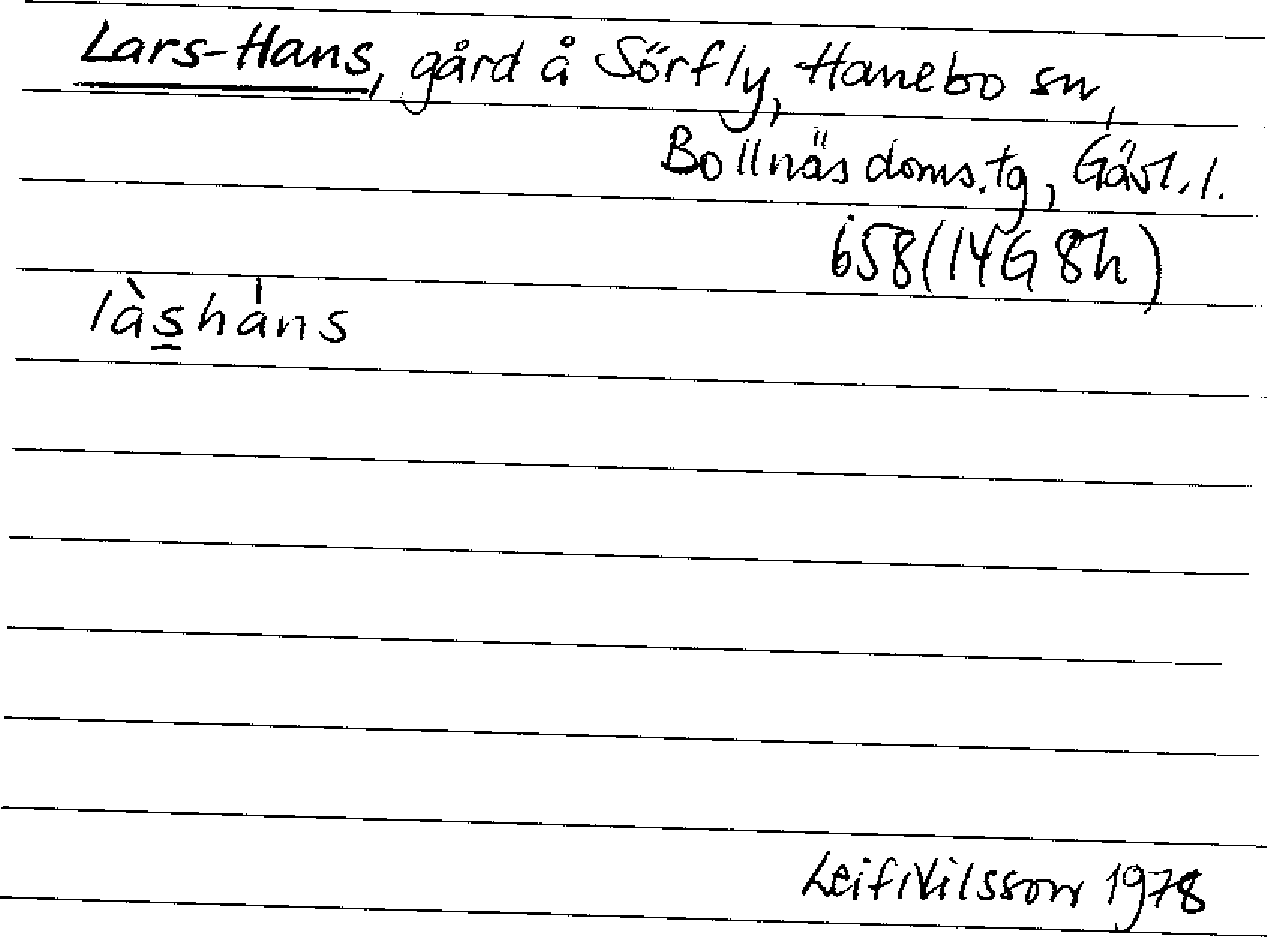 Lars-Hans, gård å Sörfly, Hanebo sn,
Bollnäs doms.tg, Gävl. l.
658 (14G 8h)
làs̳hȧns
Leif Nilsson 1978